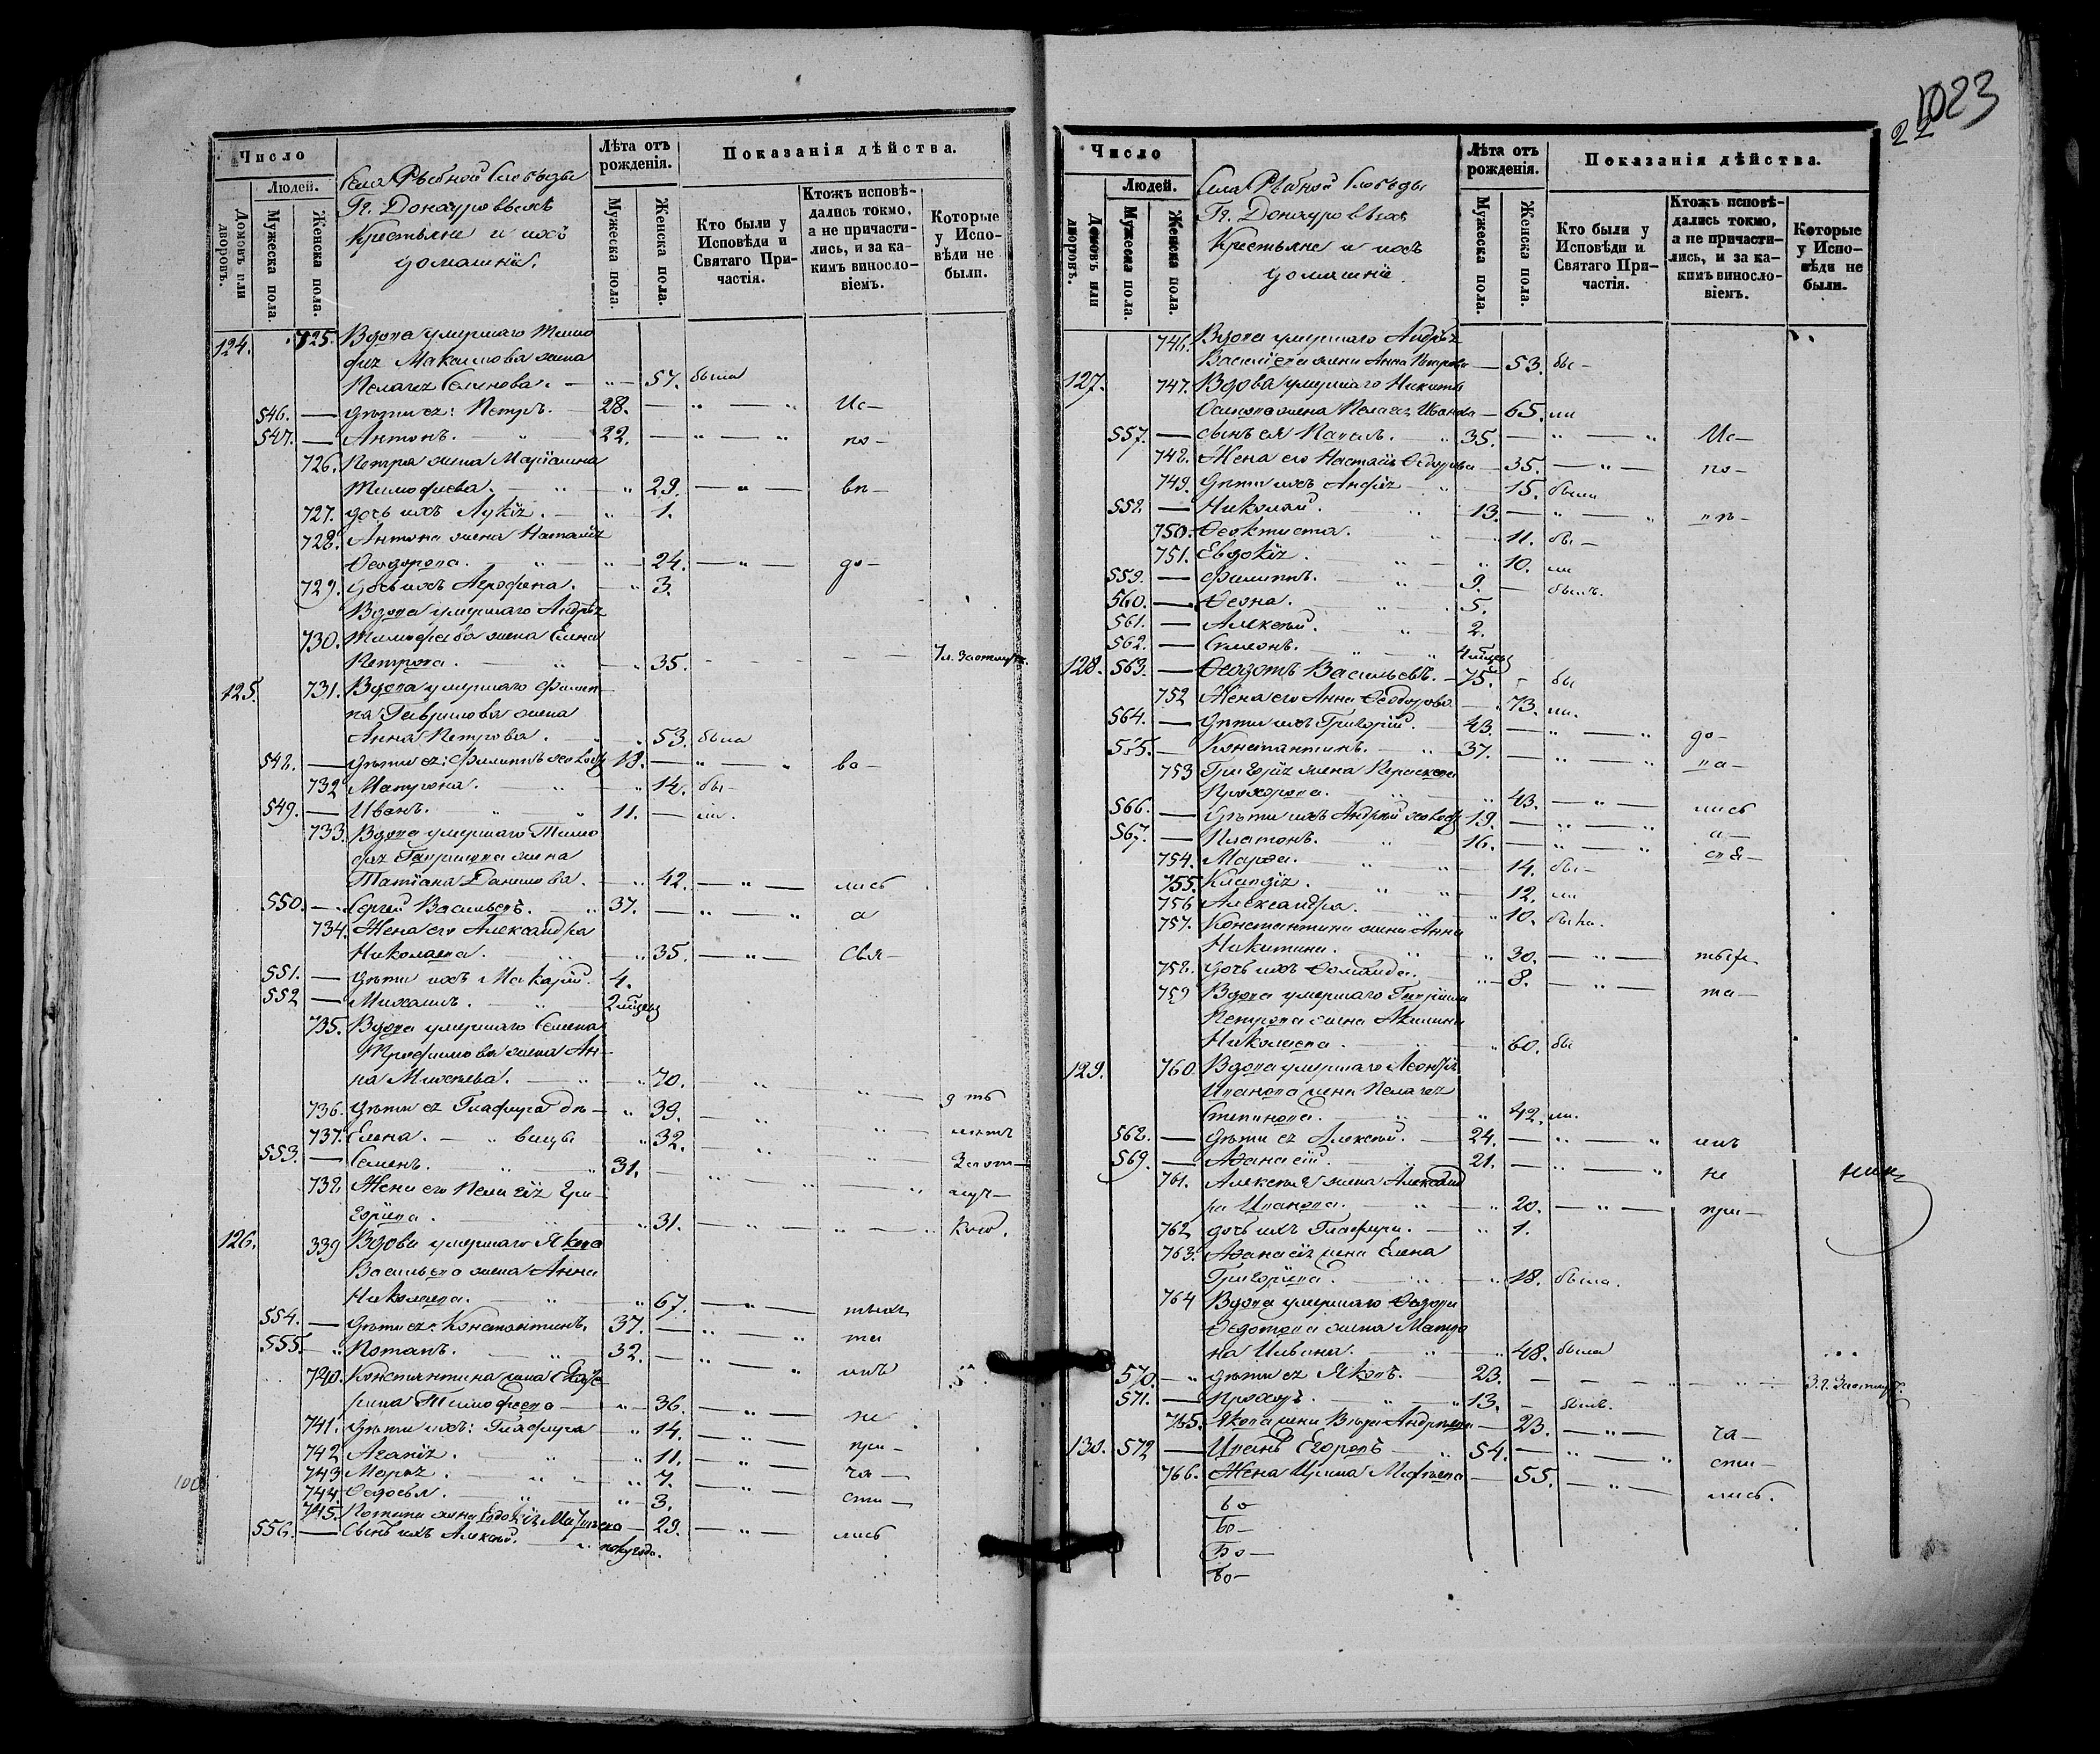 Число
Людей.
Домовъ или дворовъ.
Мужеска пола.
Женска пола.
Села Рыбной Слободы
Гг. Донауровыхъ
Крестьяне и ихъ
домашніи.
Лѣта отъ рожденія.
Мужеска пола.
Женска пола.
Показанія дѣйства.
Кто были у Исповѣди и Святаго Причастія.
Ктожъ исповѣдались токмо, а не причастились, и за какимъ винословіемъ.
Которые у Исповѣди не были.
124. 725. Вдова умершаго Тимо
фея Максимова жена
Пелагея Семенова. 57. была
546. дѣти ея: Петръ. 28. Ис-
547. Антонъ. 22. по-
726. Петра жена Маріамна
Тимофеева. 29. вѣ-
727. дочь ихъ Лукія. 1.
728. Антона жена Наталія
Ѳеодорова. 24. до-
729. дочь ихъ Агрофена. 3.
Вдова умершаго Андрея
730. Тимофеева жена Елена
Петрова. 35.
125. 731. Вдова умершаго Филип-
па Гаврилова жена
Анна Петрова. 53. была
548. дѣти ея: Филиппъ холост 18. ва-
732 Матрона. 14. бы-
549. Иванъ. 11. ли.
733. Вдова умершаго Тимо
фея Гаврилова жена
Татіана Данилова. 42. лись
550. Сергей Васильевъ. 37. а
734. Жена его Александра
Николаева. 35. Свя-
551. дѣти ихъ Макарій. 4.
552 Михаилъ. 2 мѣсяц
735. Вдова умершаго Семена
Трофимова жена Ан-
на Моисеева. 70.
736. дѣти ея Глафира дѣ- 39.
737. Елена. вицы 32.
553. Семенъ. 31.
738. Жена его Пелагея Гри-
горіева. 31.
126. 339 Вдова умершаго Якова
Васильева жена Анна
Николаева. 67. тыхъ
554. дѣти ея: Константинъ. 37. та
555. Потапъ. 32. инъ
740. Константина жена Екате
рина Тимофеева 36. не
741. дѣти ихъ: Глафира 14. при-
742 Агапія. 11. ча-
743 Марія. 7.
744. Ѳеодосья. 3. сти-
745. Потапа жена Евдокія Матвеева 29. лись
556. Сынъ ихъ Алексей. полугода.
1023
22
Число
Людей.
Домовъ или дворовъ.
Мужеска пола.
Женска пола.
Села Рыбной Слободы
Гг. Донауровыхъ
Крестьяне и ихъ
домашніе.
Лѣта отъ рожденія.
Мужеска пола.
Женска пола.
Показанія дѣйства.
Кто были у Исповѣди и Святаго Причастія.
Ктожъ исповѣдались токмо, а не причастились, и за какимъ винословіемъ.
Которые у Исповѣди не были.
746. Вдова умершаго Андрея
Васильева жена Анна Петрова 53. бы-
127. 747. Вдова умершаго Никиты
Осипова жена Пелагея Иванова 65. ли
557. сынъ ея Павелъ. 35. Ис-
748. Жена его Настасія Ѳедорова 35. по-
749. Дѣти ихъ Анфія 15. были
558. Николай. 13.
750. Ѳеоктиста. 11. бы-
751. Евдокія. 10. ли
559. Филиппъ. 9. былъ.
560. Ѳеона. 5.
561. Алексей. 2.
562. Симеонъ. 4 мѣсяц
128. 563. Ѳедотъ Васильевъ. 75. бы
752 Жена его Анна Ѳеодорова 73. ли.
564. Дѣти ихъ Григорій. 43. до-
565. Константинъ. 37. ва-
753 Григорія жена Параскева
Прохорова. 43. лись
566. Дѣти ихъ Андрей холост 19. а-
567. Платонъ. 16. свя-
754. Марѳа. 14. бы-
755. Клавдія. 12. ли
756 Александра. 10. была.
757. Константина жена Анна
Никитина. 30. тыхъ
758. дочь ихъ Соломонида. 8. та-
759 Вдова умершаго Гавріила
Петрова жена Акилина
Николаева. 60. бы
129. 760. Вдова умершаго Леонтія
Иванова жена Пелагея
Степанова. 42. ли.
568. дѣти ея Алексей. 24. инъ
569. Аѳанасій. 21. не
761. Алексея жена Александ
ра Иванова. 20. при-
762 дочь ихъ Глафира. 1.
763. Аѳанасія жена Елена
Григоріева. 18. была.
764 Вдова умершаго Ѳедора
Ѳедотова жена Матро
на Ильина. 48. была
570. дѣти ея Яковъ. 23.
571. Прохоръ. 13. былъ.
765. Якова жена Вѣра Андреева 23. ча-
130. 572 Иванъ Егоровъ 54. сти-
766. Жена Ирина Матвеева 55. лись.